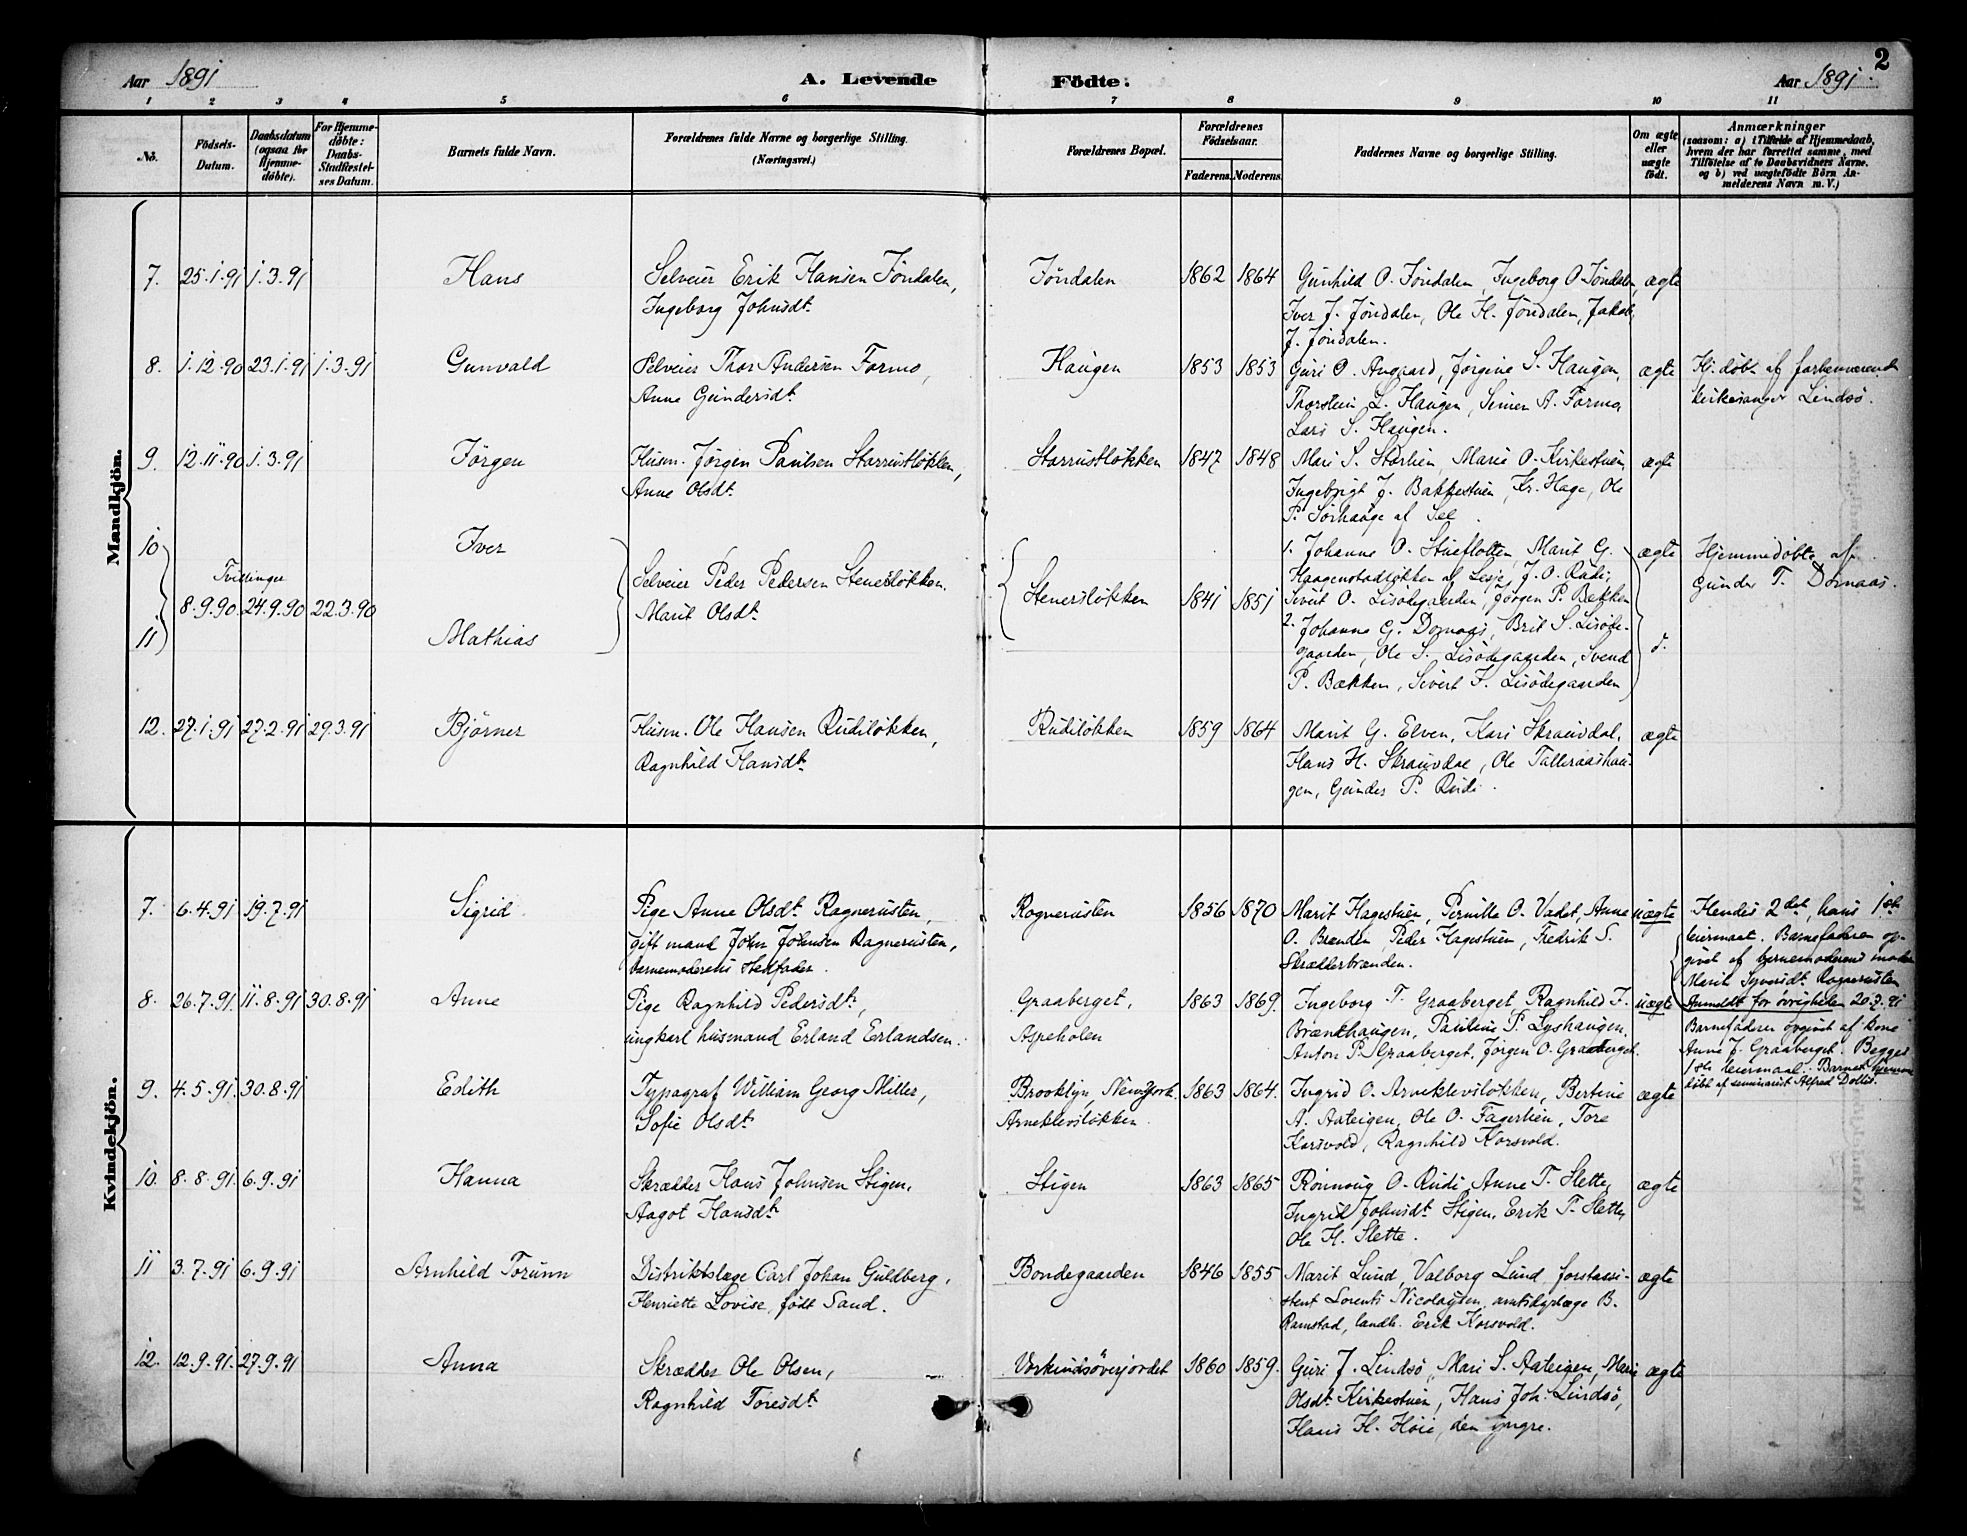 Aar 1891
A. Levende Födte.
Aar 1891.
2
1 2 3 4 5 6 7 8 9 10 11
No.
Födsels-
Datum.
Daabsdatum
(ogsaa for
Hjemme-
döbte).
For Hjemme-
döbte:
Daabs-
Stadfæstel-
ses Datum.
Barnets fulde Navn.
Forældrenes fulde Navne og borgerlige Stilling.
(Næringsvei.)
Forældrenes Bopæl.
Forældrenes
Födselsaar.
Faderens. Moderens.
Faddernes Navne og borgerlige Stilling.
Om ægte
eller
uægte
födt.
Anmærkninger
(saasom: a) i Tilfælde af Hjemmedaab,
hvem der har forrettet samme, med
Tilföielse af to Daabsvidners Navne.
og b) ved uægtefödte Börn An-
melderens Navn m. V.)
Mandkjön.
7. 25.1.91 1.3.91 Hans
Selveier Erik Hansen Jöndalen,
Ingeborg Johnsdt.
Jöndalen 1862 1864
Gunhild O. Jöndalen, Ingeborg O. Jöndalen,
Iver J. Jöndalen, Ole H. Jöndalen, Jakob
J. Jöndalen.
ægte
8. 1.12.90 23.1.91 1.3.91 Gunvald
Selveier Thor Andersen Formo,
Anne Gundersdt.
Haugen 1853 1853
Guri O. Angaard, Jörgine S. Haugen,
Thorstein L. Haugen, Simen A. Formo,
Lars S. Haugen.
ægte
Hj. döbt af forhenværende
kirkesanger Lindsö.
9. 12.11.90 1.3.91 Jörgen
Husm. Jörgen Paulsen Starrustlökken,
Anne Olsdt.
Starrustlökken 1847 1848
Mari S. Storlien, Marie O. Kirkestuen,
Ingebrigt J. Bakkestuen, Kr. Hage, Ole
P. Sörhauge af Sel.
ægte
10 Iver
Tvillinger
8.9.90 24.9.90 22.3.90
11 Mathias
Selveier Peder Pedersen Stenerslökken.
Marit Olsdt.
Stenerslökken 1841 1851
1. Johanne O. Stuefloten, Marit G.
Haagenstadlökken af Lesje, J. O. Rudi,
Sivert O. Lisödegaarden, Jörgen P. Bækken
2. Johanne G. Domaas, Brit S. Lisöde-
gaarden, Ole S. Lisödegaarden, Svend
P. Bækken, Sivert F. Lisödegaarden
ægte
d.
Hjemmedöbte af
Gunder T. Domaas.
12. 27.1.91 27.2.91 29.3.91 Björner
Husm. Ole Hansen Rudilökken,
Ragnhild Hansdt.
Rudilökken 1859 1864
Marit G. Elven, Kari Skrauvdal,
Hans H. Skrauvdal, Ole Talleraashau-
gen, Gunder P. Rudi.
ægte
Kvindekjön.
7. 6.4.91 19.7.91 Sigrid
Pige Anne Olsdt. Ragnerusten,
gift mand John Johnsen Ragnerusten,
barnemoderens Stedfader.
Rognerusten 1856 1870
Marit Hagestuen, Pernille O. Vadet, Anne
O. Brænden, Peder Hagestuen, Fredrik S.
Skrædderbrænden.
uægte
Hendes 2det, hans 1ste
leiermaal. Barnefaderen op-
givet af barnemoderens moder
Marit Syversdt. Rognerusten
Anmeldt for övrigheten 20.7.91
8. 26.7.91. 11.8.91 30.8.91 Anne
Pige Ragnhild Pedersdt.,
ungkarl husmand Erland Erlandsen.
Graaberget,
Aspeholen
1863 1869.
Ingeborg T. Graaberget, Ragnhild J.
Brændhaugen, Pauline P. Lyshaugen,
Anton P. Graaberget, Jörgen O. Graaberget.
uægte
Barnefaderen opgivet af kone
Anne J. Graaberget. Begges
1ste leiermaal. Barnet hjemme
döbt af seminarist Alfred Dollis.
9. 4.5.91 30.8.91 Edith
Typograf William Georg Miller,
Sofie Olsdt.
Brooklyn, Newyork.
Arneklevslökken.
1863 1864.
Ingrid O. Arneklevslökken, Bertine
A. Aateigen, Ole O. Fagerlien, Tore
Korsvold, Ragnhild Korsvold.
ægte
10. 8.8.91. 6.9.91 Hanna
Skrædder Hans Johnsen Stigen,
Aagot Hansdt.
Stigen 1863 1865
Rönnoug O. Rudi, Anne T. Slette,
Ingrid Johnsdt. Stigen, Erik T. Slette,
Ole H. Slette.
ægte
11 3.7.91 6.9.91 Arnhild Torunn
Distriktslæge Carl Johan Guldberg,
Henriette Lovise, födt Sand.
Bondegaarden 1846 1855
Marit Lund, Valborg Lund, forstassi-
stent Lorents Nicolaysen, amtsdyrlæge B.
Ramstad, landh. Erik Korsvold.
ægte
12. 12.9.91. 27.9.91 Anna
Skrædder Ole Olsen,
Ragnhild Toresdt.
Vorkindsöverjordet 1860 1859.
Guri J. Lindsö, Mari S. Aateigen, Marie
Olsdt. Kirkestuen, Hans Joh. Lindsö,
Hans H. Höie, den yngre.
ægte